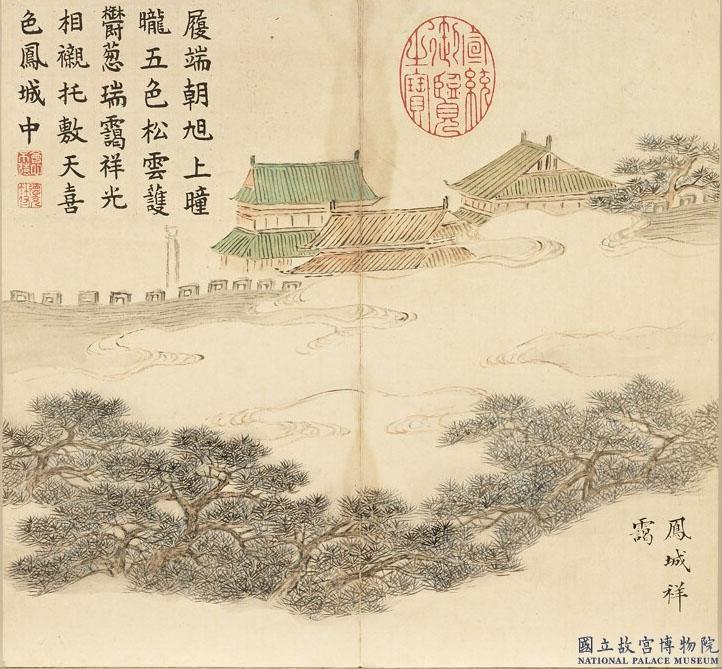 履端朝旭上曈
曨五色松雲護
鬱葱瑞靄祥光
相襯托敷天喜
色鳳城中
宣統
御覽
之寶
鳳城祥
靄
國立故宮博物院
NATIONAL PALACE MUSEUM